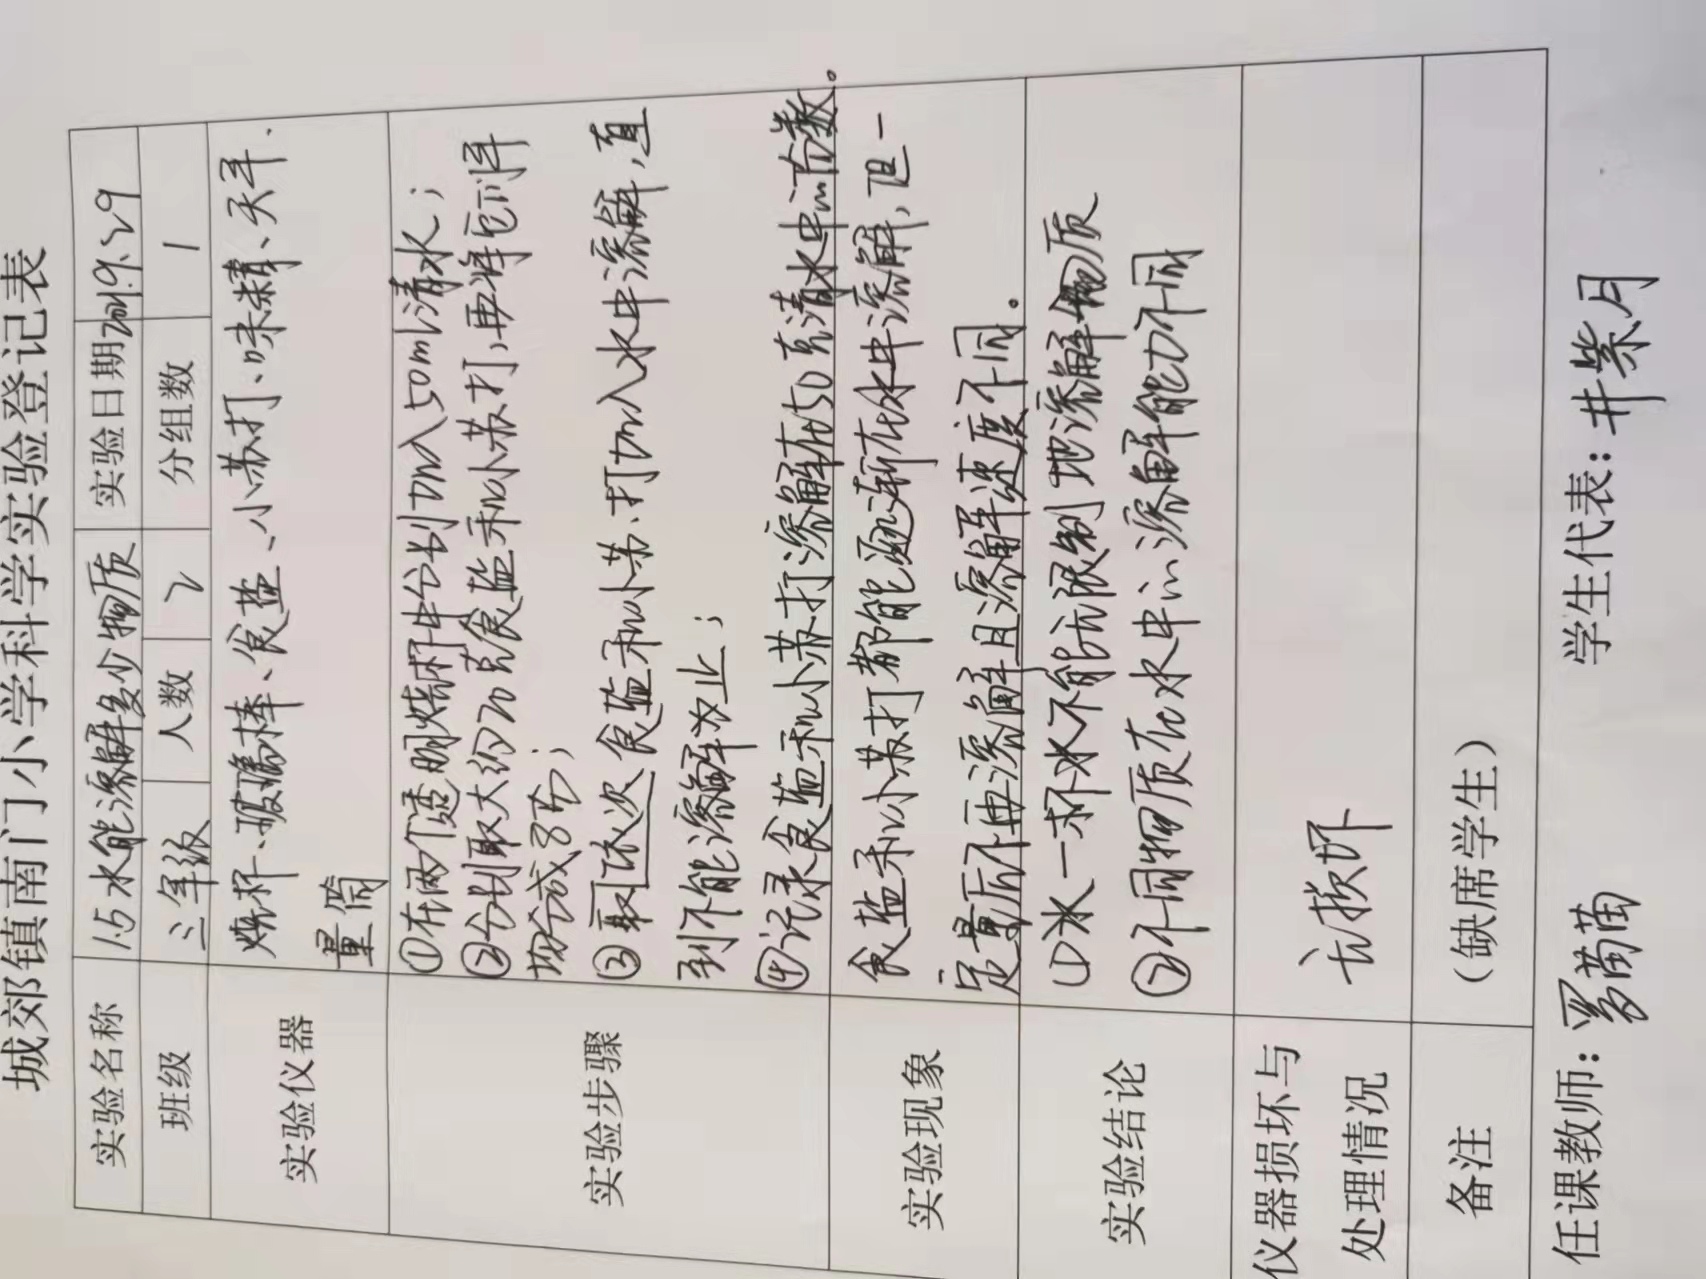 城郊镇南门小学科学实验登记表
实验名称 1.5水能溶解多少物质 实验日期 2021.9.29
班级 三年级 人数 2 分组数 1
实验仪器 烧杯、玻璃棒、食盐、小苏打、味精、天平、
量筒
实验步骤 ①在两个透明烧杯中分别加入50ml清水;
②分别取大约20克食盐和小苏打,再将它们平
均分成8份;
③取依次食盐和小苏打加入水中溶解,直
到不能溶解为止;
④记录食盐和小苏打溶解在50克清水中的份数。
实验现象 食盐和小苏打都能逐渐在水中溶解,但一
定量后不再溶解且溶解速度不同。
实验结论 ①水一杯水不能无限制地溶解物质
②不同物质在水中的溶解能力不同
仪器损坏与
处理情况 无损坏
备注 (缺席学生)
任课教师: 萄 学生代表: 井紫月